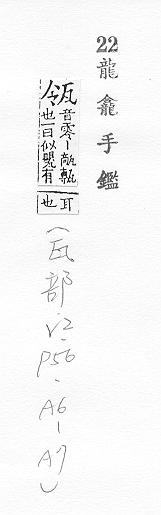 22龍龕手鑑
瓴音零丨㼾甎
也一曰似甖有
耳也
(瓦部.v2.p56.A6-A7)